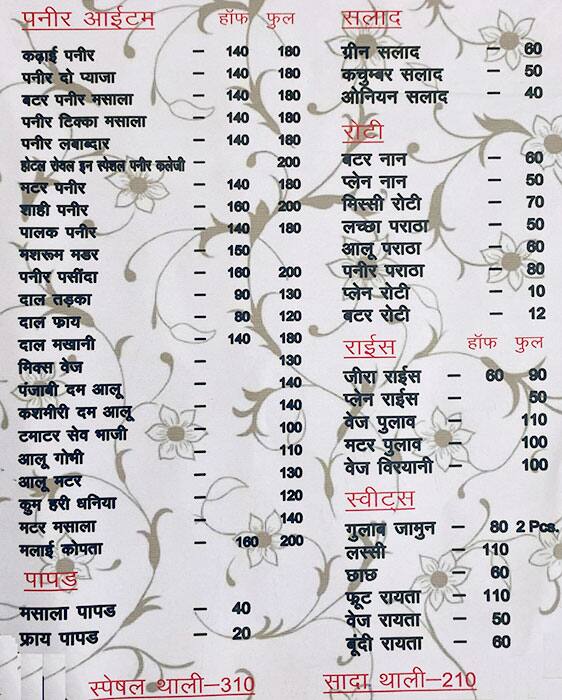 पनीर आईटम हॉफ फुल
कढ़ाई पनीर – 140 180
पनीर दो प्याजा – 140 180
बटर पनीर मसाला – 140 180
पनीर टिक्का मसाला – 140 180
पनीर लबाब्दार – 140 180
होटल रोयल इन स्पेशल पनीर कलेजी – 200
मटर पनीर – 140 180
शाही पनीर – 160 200
पालक पनीर – 140 180
मशरूम मडर – 150
पनीर पसींदा – 160 200
दाल तड़का – 90 130
दाल फ्राय – 80 120
दाल मखानी – 140 180
मिक्स वेज – 130
पंजाबी दम आलू – 140
कशमीरी दम आलू – 140
टमाटर सेव भाजी – 100
आलू गोभी – 110
आलू मटर – 130
कुम हरी धनिया – 120
मटर मसाला – 140
मलाई कोपता – 160 200
पापड
मसाला पापड – 40
फ्राय पापड – 20
स्पेषल थाली–310
सलाद
ग्रीन सलाद – 60
कचुम्बर सलाद – 50
ओनियन सलाद – 40
रोटी
बटर नान – 60
प्लेन नान – 50
मिस्सी रोटी – 70
लच्छा पराठा – 50
आलू पराठा – 60
पनीर पराठा – 80
प्लेन रोटी – 10
बटर रोटी – 12
राईस हॉफ फुल
जीरा राईस – 60 90
प्लेन राईस – 50
वेज पुलाव – 110
मटर पुलाव – 100
वेज विरयानी – 100
स्वीट्स
गुलाब जामुन – 80 2 Pcs.
लस्सी – 110
छाछ – 60
फ्रूट रायता – 110
वेज रायता – 50
बूंदी रायता – 60
सादा थाली–210